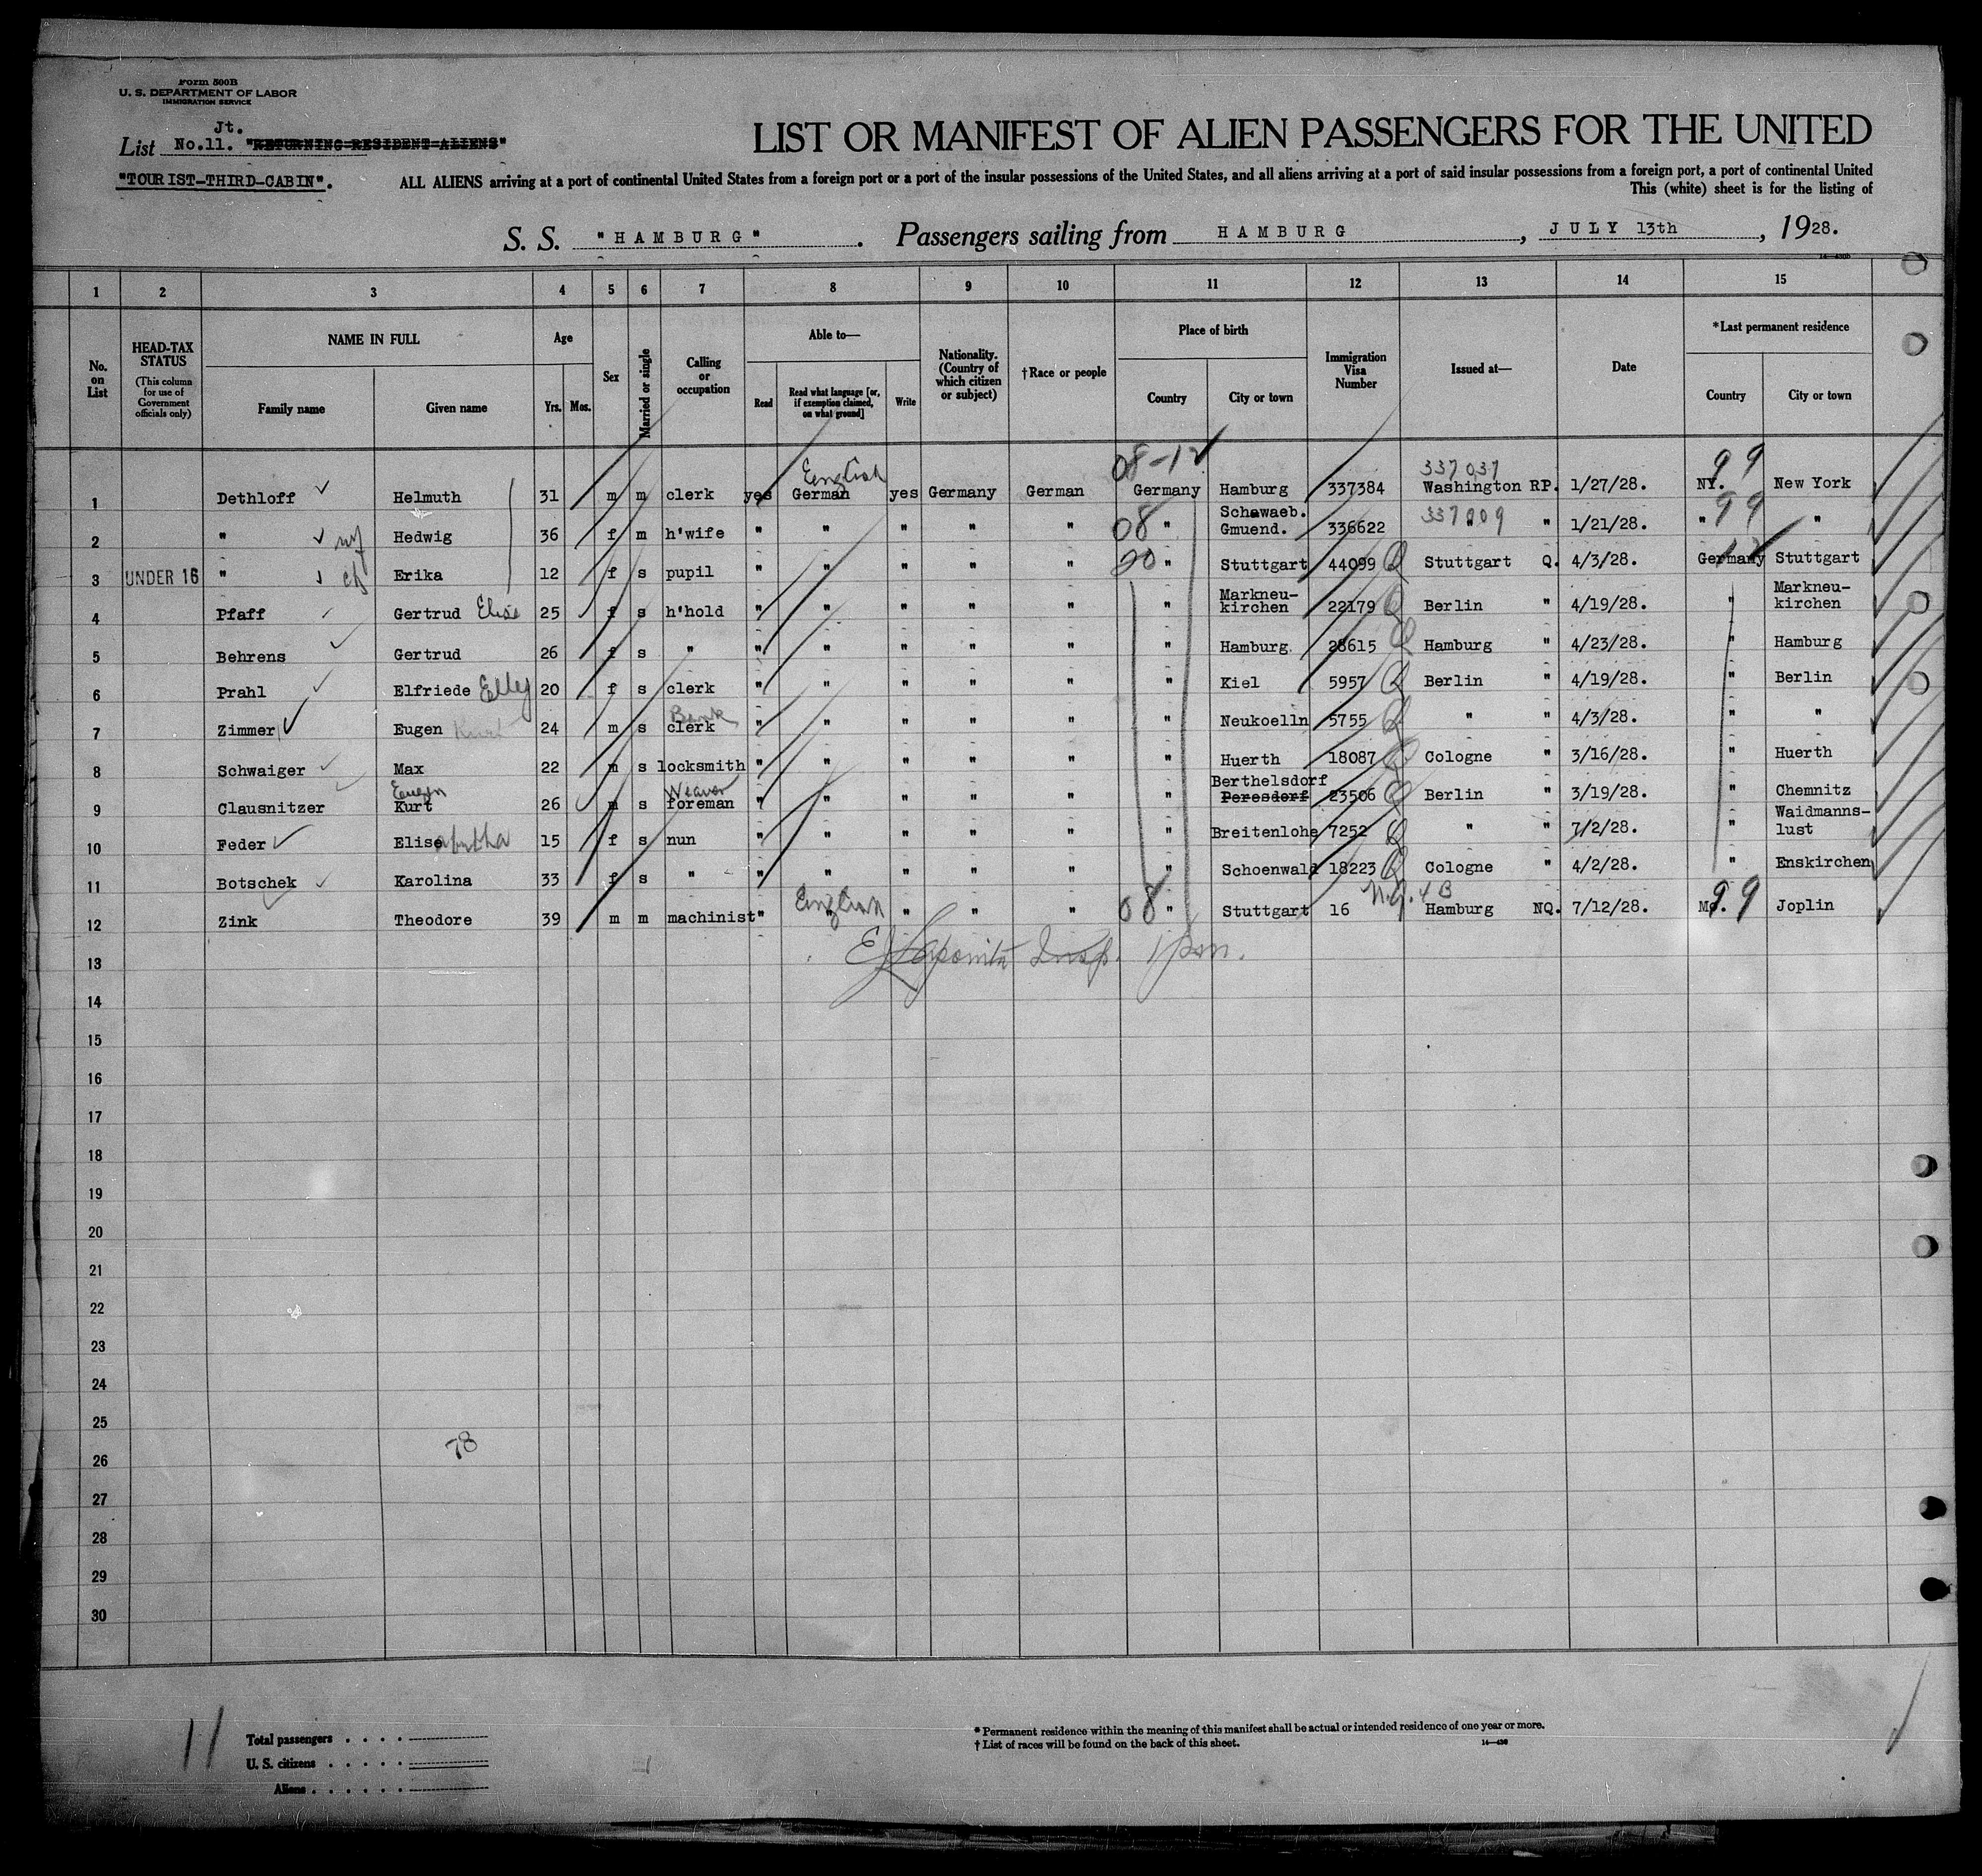 Form 500B
U. S. DEPARTMENT OF LABOR
IMMIGRATION SERVICE
Jt.
List No.11. "RETURNING-RESIDENT-ALIENS"
"TOURIST-THIRD-CABIN".
LIST OR MANIFEST OF ALIEN PASSENGERS FOR THE UNITED
ALL ALIENS arriving at a port of continental United States from a foreign port or a port of the insular possessions of the United States, and all aliens arriving at a port of said insular possessions from a foreign port, a port of continental United
This (white) sheet is for the listing of
S. S. "HAMBURG". Passengers sailing from HAMBURG, JULY 13th, 1928.
1 2 3 4 5 6 7 8 9 10 11 12 13 14 15
No. on List
HEAD-TAX STATUS (This column for use of Government officials only)
NAME IN FULL
Family name Given name
Age
Yrs. Mos.
Sex
Married or single
Calling or occupation
Able to—
Read Read what language [or, if exemption claimed, on what ground] Write
Nationality. (Country of which citizen or subject)
†Race or people
Place of birth
Country City or town
Immigration Visa Number
Issued at—
Date
*Last permanent residence
Country City or town
08-12 337037 99
English
1 Dethloff Helmuth 31 m m clerk yes German yes Germany German Germany Hamburg 337384 Washington RP. 1/27/28. NY. New York
2 " wf Hedwig 36 f m h'wife " " " " " 08 " Schawaeb. Gmuend. 336622 337009 " " 1/21/28. " 99 "
3 UNDER 16 " ch Erika 12 f s pupil " " " " " 20 " Stuttgart 44099 Q Stuttgart Q. 4/3/28. Germany Stuttgart
4 Pfaff Gertrud Elise 25 f s h'hold " " " " " " Markneu-kirchen 22179 Q Berlin " 4/19/28. " Markneu-kirchen
5 Behrens Gertrud 26 f s " " " " " " " Hamburg 28615 Q Hamburg " 4/23/28. " Hamburg
6 Prahl Elfriede Elly 20 f s clerk " " " " " " Kiel 5957 Q Berlin " 4/19/28. " Berlin
Bank
7 Zimmer Eugen Kurt 24 m s clerk " " " " " " Neukoelln 5755 Q " " 4/3/28. " "
8 Schwaiger Max 22 m s locksmith " " " " " " Huerth 18087 Q Cologne " 3/16/28. " Huerth
Eugen Weaver Berthelsdorf
9 Clausnitzer Kurt 26 m s foreman " " " " " " Peresdorf 23506 Q Berlin " 3/19/28. " Chemnitz
10 Feder Elisabetha 15 f s nun " " " " " " Breitenlohe 7252 Q " " 7/2/28. " Waidmanns-lust
11 Botschek Karolina 33 f s " " " " " " " Schoenwald 18223 Q Cologne " 4/2/28. " Enskirchen
English N.Q. 4 B
12 Zink Theodore 39 m m machinist " " " " " 08 " Stuttgart 16 Hamburg NQ. 7/12/28. Mo. 99 Joplin
13 Insp.
14
15
16
17
18
19
20
21
22
23
24
25
78
26
27
28
29
30
11
Total passengers
U. S. citizens
Aliens
* Permanent residence within the meaning of this manifest shall be actual or intended residence of one year or more.
† List of races will be found on the back of this sheet.
14—430